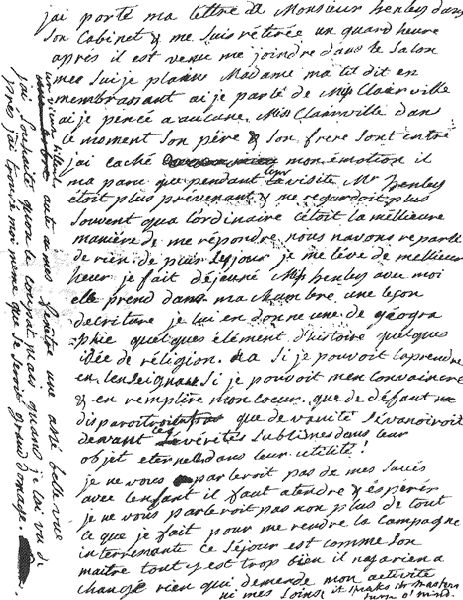 jai porté ma lettre a Monsieur henley dans
son Cabinet & me suis retirée un quard heure
après il est venu me joindre dans le salon
mes suije plainte Madame ma til dit en
membrassant ai je parlé de Miss Clairville
ai je pencé a aucune Miss Clairville dans
le moment son père & son frere sont entré
jai caché mon émotion il
ma paru que pendant leur visite Mr henley
étoit plus prévenant & me regardoit plus
souvent qua lordinaire cetoit la meilleure
manière de me répondre nous navons reparlé
de rien de puis lejour je me lève de meilleur
heur je fait déjeuné Miss henley avec moi
elle prend dans ma chambre une leçon
décriture je lui en donne une de géogra
phie quelques élément d'histoire quelques
idée de réligion. ha si je pouvoit laprendre
en lenseignant si je pouvoit men convaincre
& en remplire mon cœur. que de défaut
disparoitroit que de vanité sévanoüiroit
devant ces vérités sublimes dans leur
objet eternelles dans leur utilité!
je ne vous parleroit pas de mes succès
avec lenfant il faut atendre & éspérér
je ne vous parleroit pas non plus de tout
ce que je fait pour me rendre la Campagne
interressante ce séjour est comme son
maitre tout y est trop bien il ny a rien a
changé rien qui demende mon activité
ni mes soins it speaks its masters
turn o' mind.
un vieux tilleul aute a mes fenêtre une assé belle vue
jai souhaité quon le coupat mais quand je lai vu de
près jai trouvé moi même que se seroit grand domage.